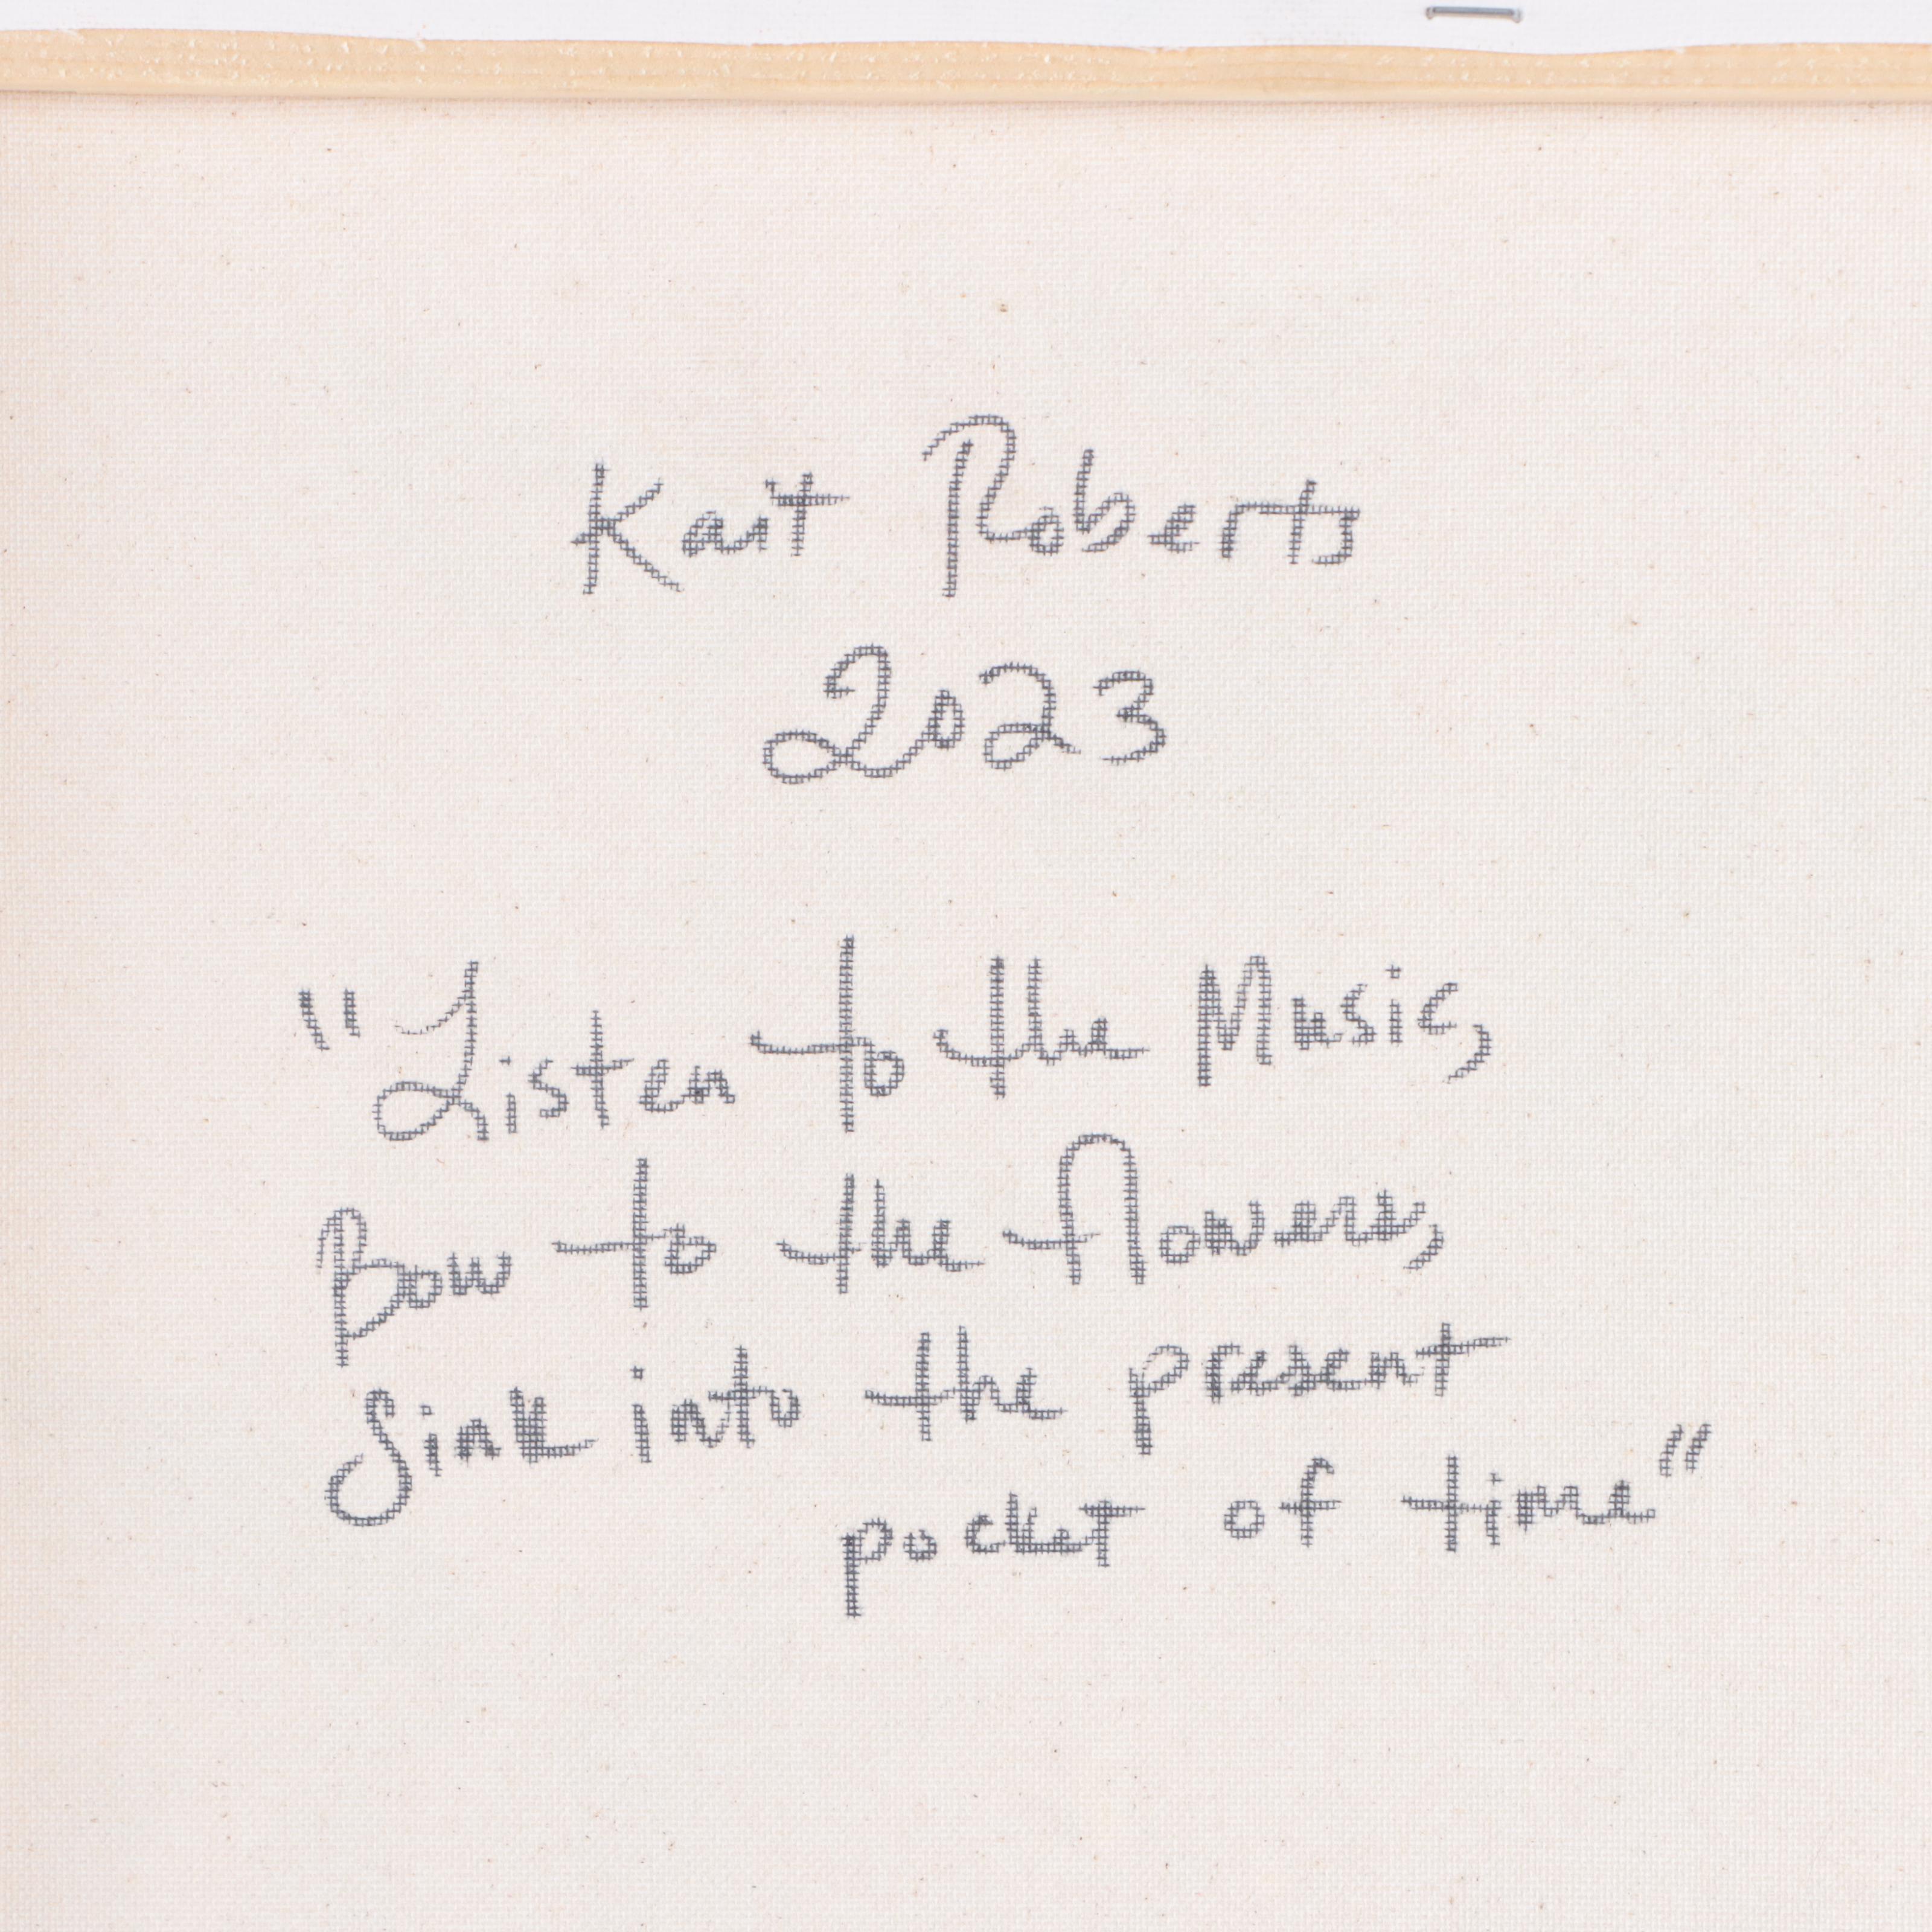 Kait Roberts
2023
"Listen to the Music,
Bow to the flowers,
Sink into the present
pocket of time"